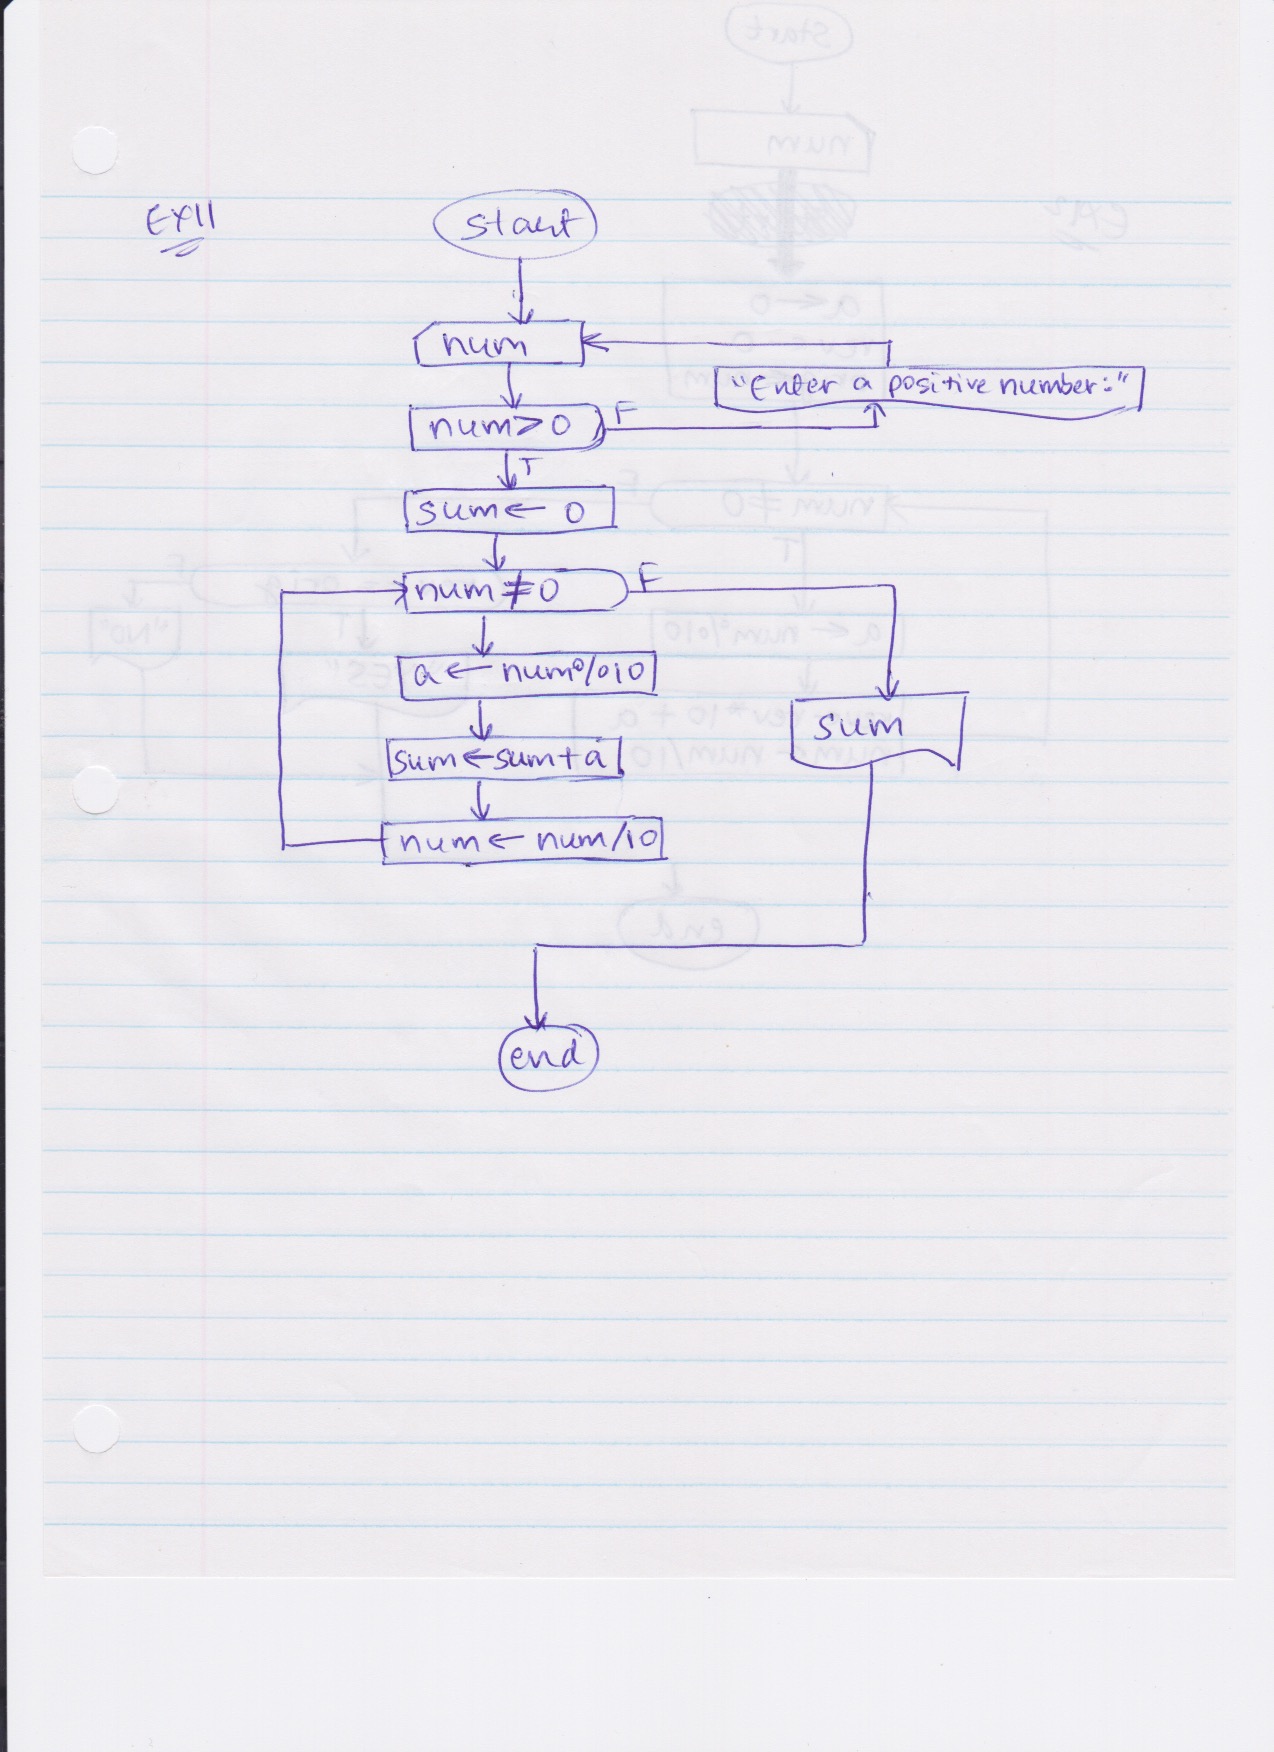 EX11
start
num
"Enter a positive number:"
num>0 F
T
sum← 0
num≠0 F
a ← num%10
sum
sum←sum+a
num← num/10
end